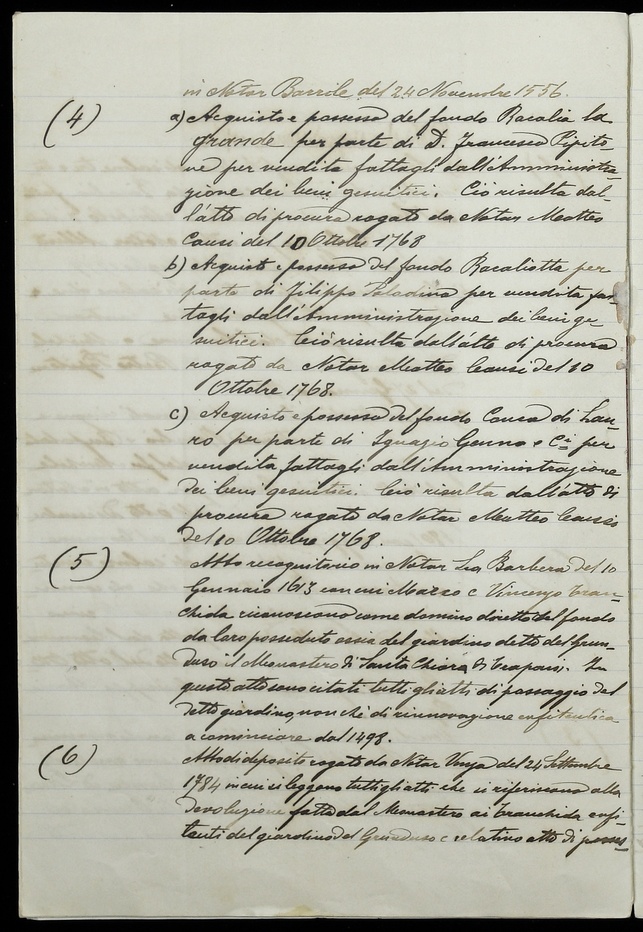 in Notar Barrile del 24 Novembre 1556.
(4) a) Acquisto e possesso del fondo Racalia la
grande per parte di D. Francesco Pipito-
ne per vendita fattagli dall'Amministra-
zione dei beni gesuitici. Ciò risulta dal-
l'atto di procura rogato da Notar Matteo
Causi del 10 Ottobre 1768
b) Acquisto e possesso del fondo Racaliotta per
parte di Filippo Paladino per vendita fat-
tagli dall'Amministrazione dei beni ge
suitici. Ciò risulta dall'atto di procura
rogato da Notar Matteo Causi del 10
Ottobre 1768.
c) Acquisto e possesso del fondo Causa di Lau-
ro per parte di Ignazio Genna e Ci per
vendita fattagli dall'Amministrazione
dei beni gesuitici. Ciò risulta dall'atto di
procura rogato da Notar Matteo Causi
del 10 Ottobre 1768.
(5) Atto recognitorio in Notar La Barbera del 10
Gennaio 1613 con cui Marzo e Vincenzo Tran-
chida riconoscono come domino diretto del fondo
da loro posseduto ossia del giardino detto del Gran-
duso il Monastero di Santa Chiara di Trapani. In
questo atto sono citati tutti gli atti di passaggio del
detto giardino, nonchè di rinnovazione enfiteutica
a cominciare dal 1498.
(6) Atto di deposito rogato da Notar del 24 Settembre
1784 in cui si leggono tutti gli atti che si riferiscono alla
devoluzione fatta dal Monastero ai Tranchida enfi-
teuti del giardino del Granduso e relativo atto di posses